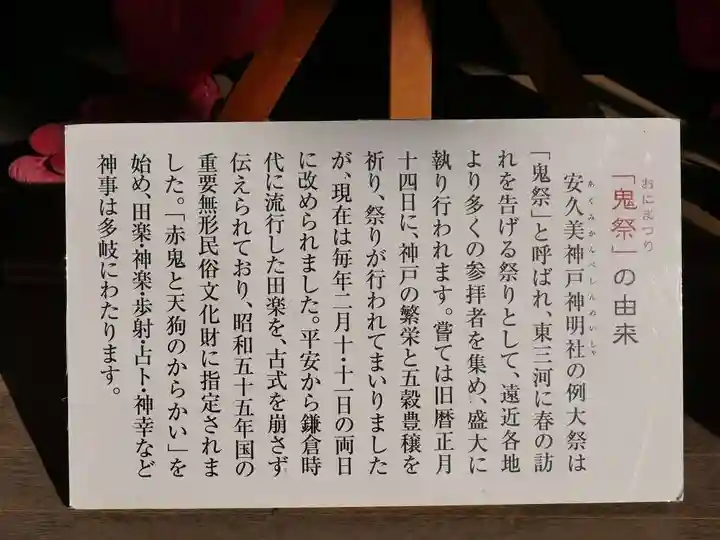 「鬼祭」の由来
おにまつり
安久美神戸神明社の例大祭は
あくみかんべしんめいしゃ
「鬼祭」と呼ばれ、東三河に春の訪
れを告げる祭りとして、遠近各地
より多くの参拝者を集め、盛大に
執り行われます。嘗ては旧暦正月
十四日に、神戸の繁栄と五穀豊穣を
祈り、祭りが行われてまいりました
が、現在は毎年二月十・十一日の両日
に改められました。平安から鎌倉時
代に流行した田楽を、古式を崩さず
伝えられており、昭和五十五年国の
重要無形民俗文化財に指定されま
した。「赤鬼と天狗のからかい」を
始め、田楽・神楽・歩射・占卜・神幸など
神事は多岐にわたります。